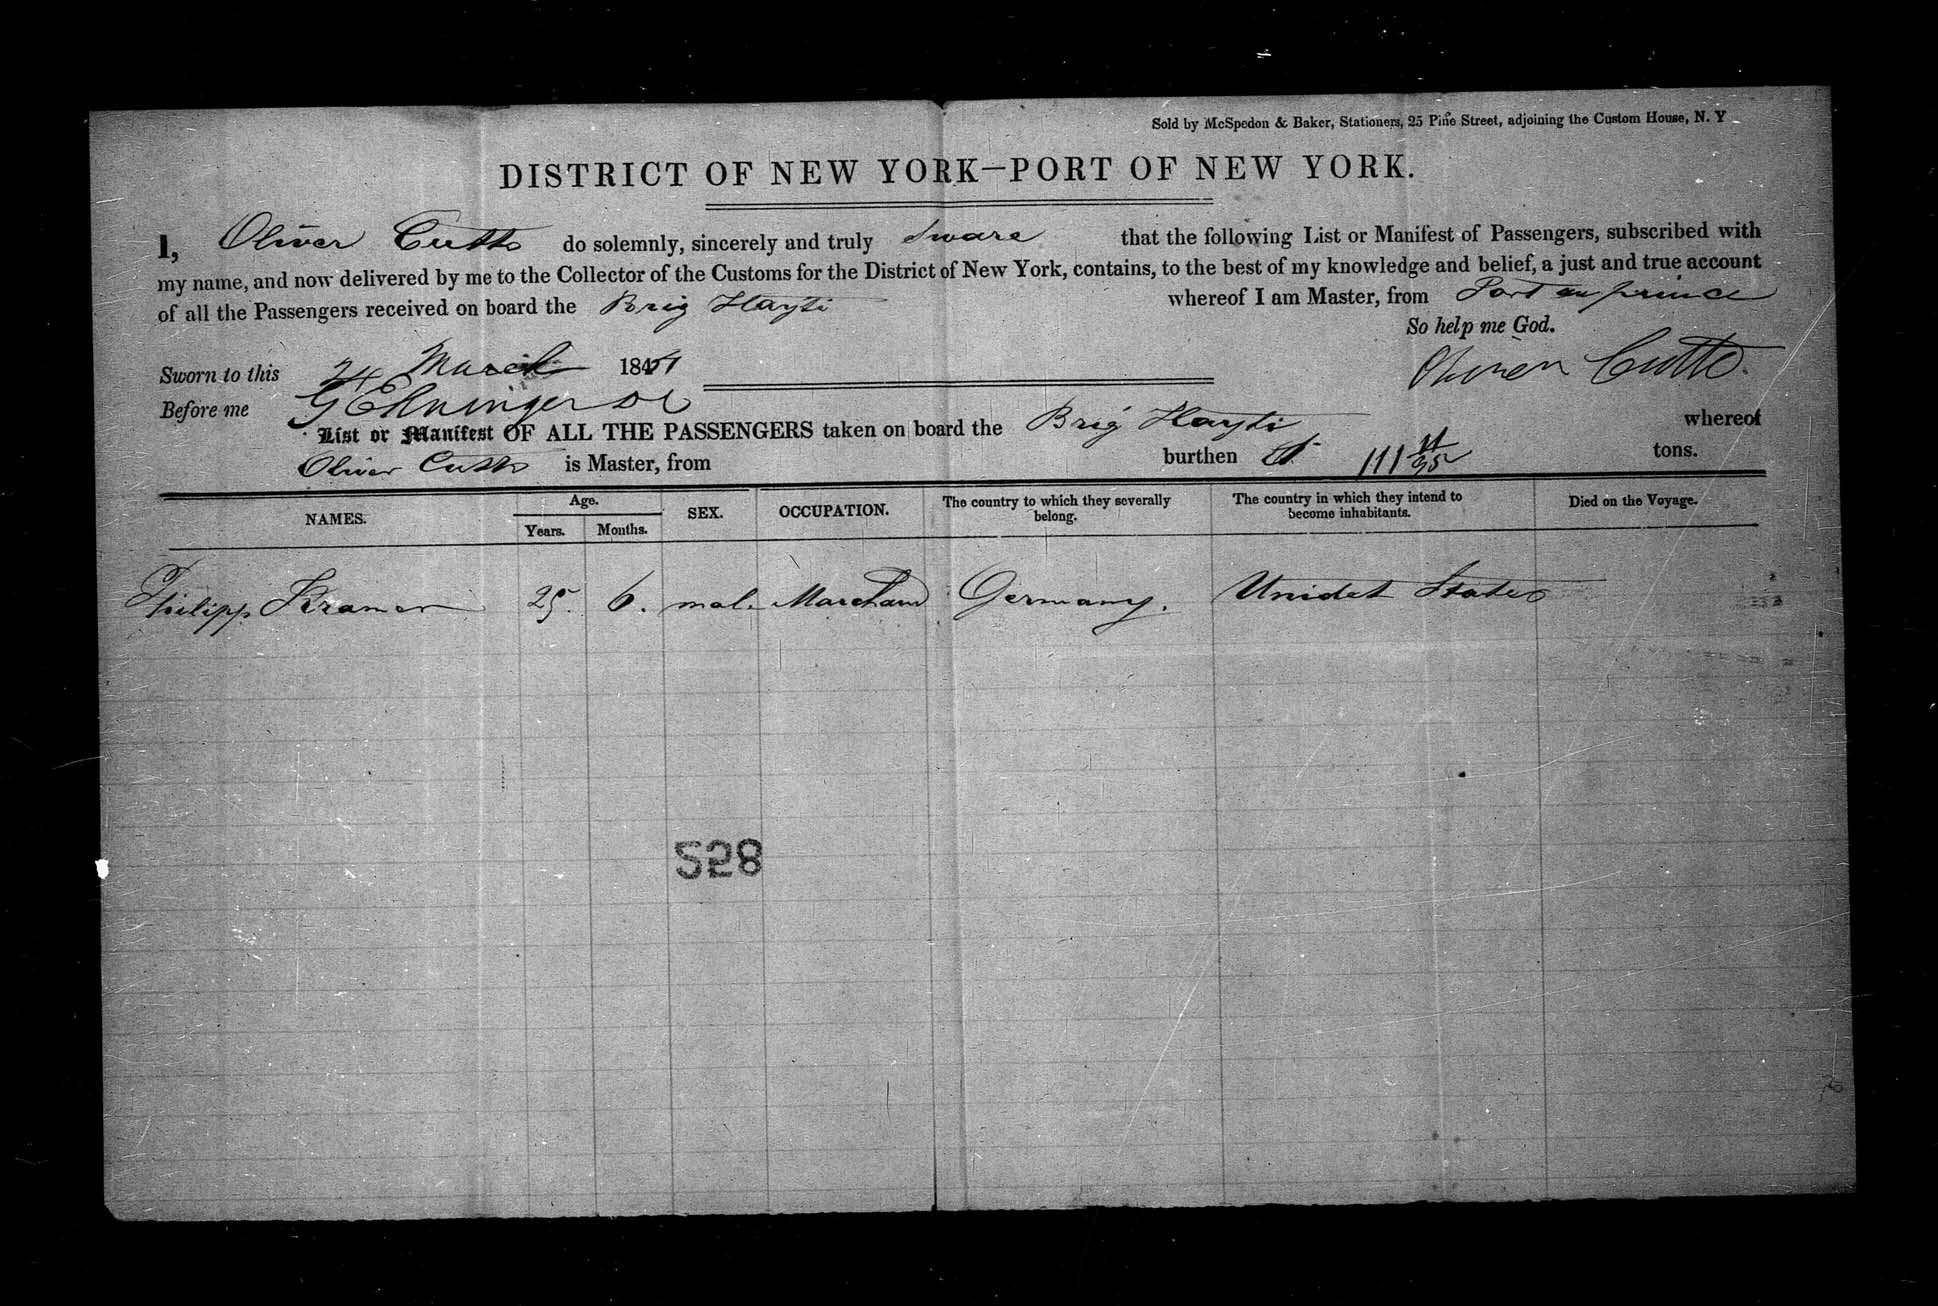 Sold by McSpedon & Baker, Stationers, 25 Pine Street, adjoining the Custom House, N. Y
DISTRICT OF NEW YORK—PORT OF NEW YORK.
I, Oliver Cutts do solemnly, sincerely and truly Sware that the following List or Manifest of Passengers, subscribed with
my name, and now delivered by me to the Collector of the Customs for the District of New York, contains, to the best of my knowledge and belief, a just and true account
of all the Passengers received on board the Brig Hayti whereof I am Master, from Port au prince
So help me God.
Sworn to this 24 March 18
Oliver Cutts.
Before me
List or Manifest OF ALL THE PASSENGERS taken on board the Brig Hayti whereof
Oliver Cutts is Master, from burthen 111 tons.
NAMES. Age. Years. Months. SEX. OCCUPATION. The country to which they severally belong. The country in which they intend to become inhabitants. Died on the Voyage.
Philipp Kramer 25. 6. mal. Marchand Germany. Unidet States
528